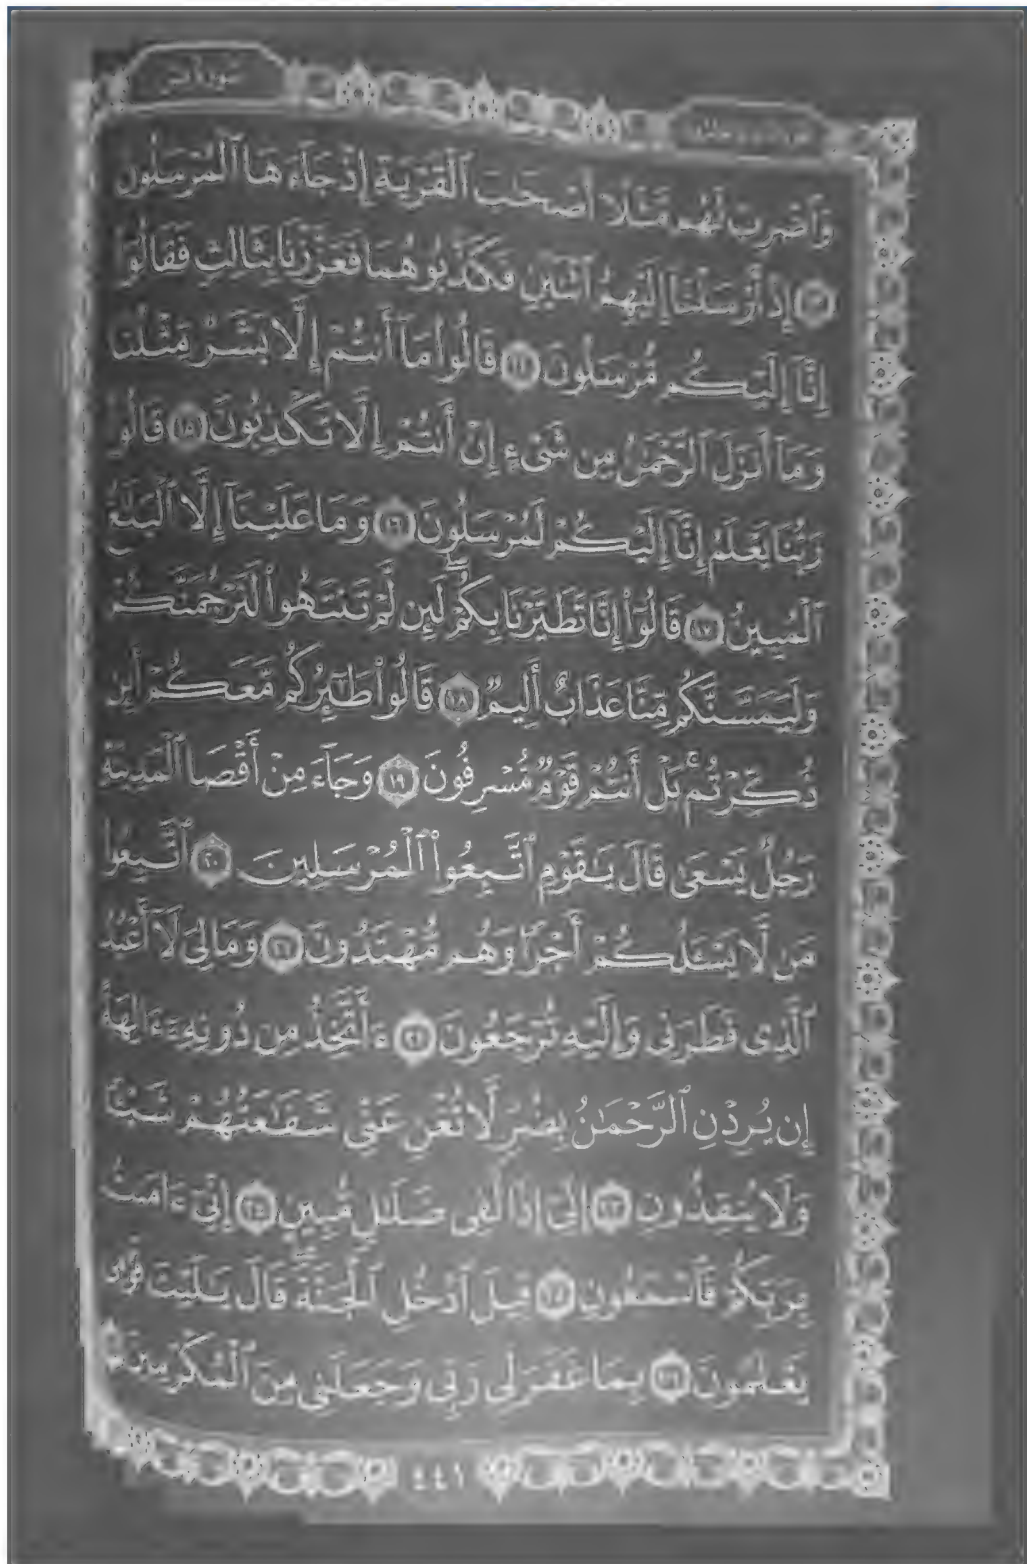 سورة يس
الجزء الثاني والعشرون
وَٱضْرِبْ لَهُم مَّثَلًا أَصْحَٰبَ ٱلْقَرْيَةِ إِذْ جَآءَهَا ٱلْمُرْسَلُونَ
﴿١٣﴾ إِذْ أَرْسَلْنَآ إِلَيْهِمُ ٱثْنَيْنِ فَكَذَّبُوهُمَا فَعَزَّزْنَا بِثَالِثٍ فَقَالُوٓا۟
إِنَّآ إِلَيْكُم مُّرْسَلُونَ ﴿١٤﴾ قَالُوا۟ مَآ أَنتُمْ إِلَّا بَشَرٌ مِّثْلُنَا
وَمَآ أَنزَلَ ٱلرَّحْمَٰنُ مِن شَىْءٍ إِنْ أَنتُمْ إِلَّا تَكْذِبُونَ ﴿١٥﴾ قَالُوا۟
رَبُّنَا يَعْلَمُ إِنَّآ إِلَيْكُمْ لَمُرْسَلُونَ ﴿١٦﴾ وَمَا عَلَيْنَآ إِلَّا ٱلْبَلَٰغُ
ٱلْمُبِينُ ﴿١٧﴾ قَالُوٓا۟ إِنَّا تَطَيَّرْنَا بِكُمْ ۖ لَئِن لَّمْ تَنتَهُوا۟ لَنَرْجُمَنَّكُمْ
وَلَيَمَسَّنَّكُم مِّنَّا عَذَابٌ أَلِيمٌ ﴿١٨﴾ قَالُوا۟ طَٰٓئِرُكُم مَّعَكُمْ ۚ أَئِن
ذُكِّرْتُم ۚ بَلْ أَنتُمْ قَوْمٌ مُّسْرِفُونَ ﴿١٩﴾ وَجَآءَ مِنْ أَقْصَا ٱلْمَدِينَةِ
رَجُلٌ يَسْعَىٰ قَالَ يَٰقَوْمِ ٱتَّبِعُوا۟ ٱلْمُرْسَلِينَ ﴿٢٠﴾ ٱتَّبِعُوا۟
مَن لَّا يَسْـَٔلُكُمْ أَجْرًا وَهُم مُّهْتَدُونَ ﴿٢١﴾ وَمَا لِىَ لَآ أَعْبُدُ
ٱلَّذِى فَطَرَنِى وَإِلَيْهِ تُرْجَعُونَ ﴿٢٢﴾ ءَأَتَّخِذُ مِن دُونِهِۦٓ ءَالِهَةً
إِن يُرِدْنِ ٱلرَّحْمَٰنُ بِضُرٍّ لَّا تُغْنِ عَنِّى شَفَٰعَتُهُمْ شَيْـًٔا
وَلَا يُنقِذُونِ ﴿٢٣﴾ إِنِّىٓ إِذًا لَّفِى ضَلَٰلٍ مُّبِينٍ ﴿٢٤﴾ إِنِّىٓ ءَامَنتُ
بِرَبِّكُمْ فَٱسْمَعُونِ ﴿٢٥﴾ قِيلَ ٱدْخُلِ ٱلْجَنَّةَ ۖ قَالَ يَٰلَيْتَ قَوْمِى
يَعْلَمُونَ ﴿٢٦﴾ بِمَا غَفَرَ لِى رَبِّى وَجَعَلَنِى مِنَ ٱلْمُكْرَمِينَ ﴿٢٧﴾
٤٤١